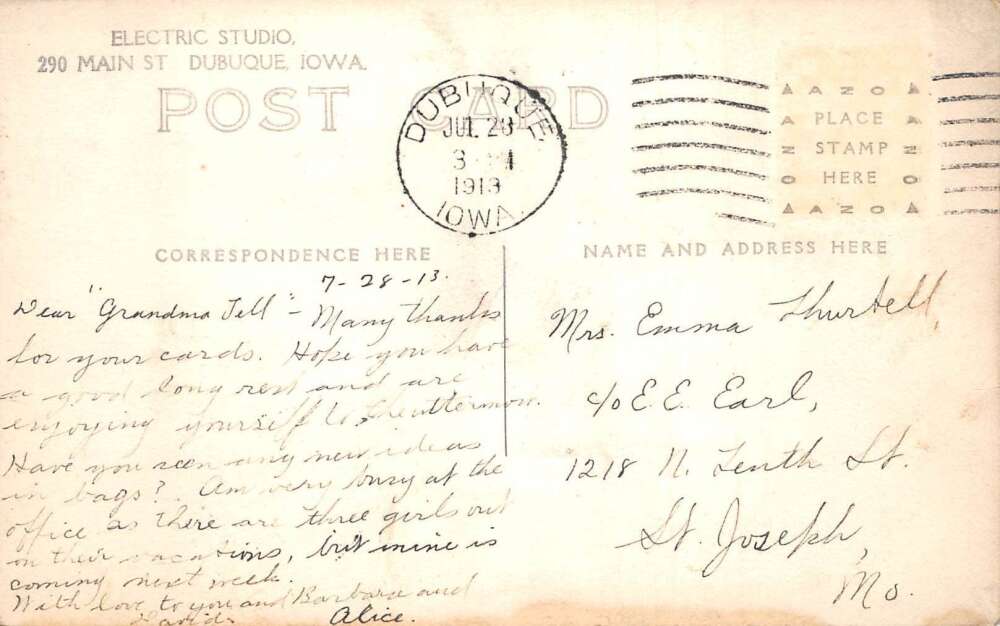 ELECTRIC STUDIO,
290 MAIN ST DUBUQUE, IOWA.
POST CARD
DUBUQUE
JUL 28
3 M
1913
IOWA
AZO
PLACE
STAMP
HERE
AZO
CORRESPONDENCE HERE
7-28-13.
Dear "Grandma Tell" - Many thanks
for your cards. Hope you have
a good long rest and are
enjoying yourself to the uttermost.
Have you seen any new ideas
in bags? Am very busy at the
office as there are three girls out
on their vacations, but mine is
coming next week.
With love to you and Barbara and
David. Alice.
NAME AND ADDRESS HERE
Mrs. Emma Thurtell,
c/o E. E. Earl,
1218 N. Tenth St.
St. Joseph,
Mo.